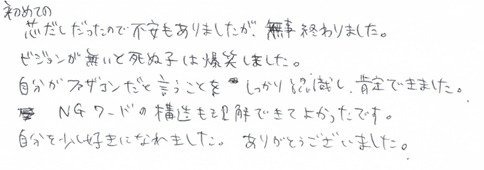 初めての
芯だしだったので不安もありましたが、無事終わりました。
ビジョンが無いと死ぬ子は爆笑しました。
自分がファザコンだと言うことをしっかり認識し、肯定できました。
NGワードの構造も理解できてよかったです。
自分を少し好きになれました。ありがとうございました。